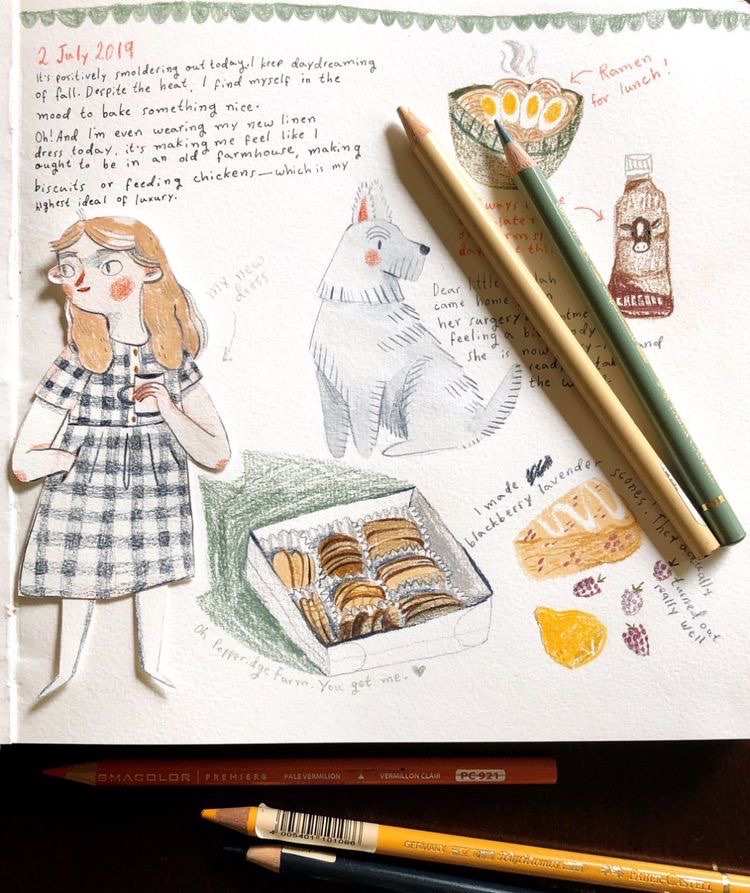 2 July 2019
It's positively smoldering out today. I keep daydreaming
of fall. Despite the heat, I find myself in the
mood to bake something nice.
Oh! And I'm even wearing my new linen
dress today, it's making me feel like I
ought to be in an old farmhouse, making
biscuits or feeding chickens—which is my
highest ideal of luxury.
Ramen
for lunch!
my new
dress
Dear little
came home
her surgery
feeling a
she is now
the
I made
blackberry lavender
scones! They actually
turned out
really well
Oh Pepperidge Farm. You get me.
PREMIER PALE VERMILION VERMILLON CLAIR PC 921
4 005401 101096
GERMANY Polychromos FABER-CASTELL